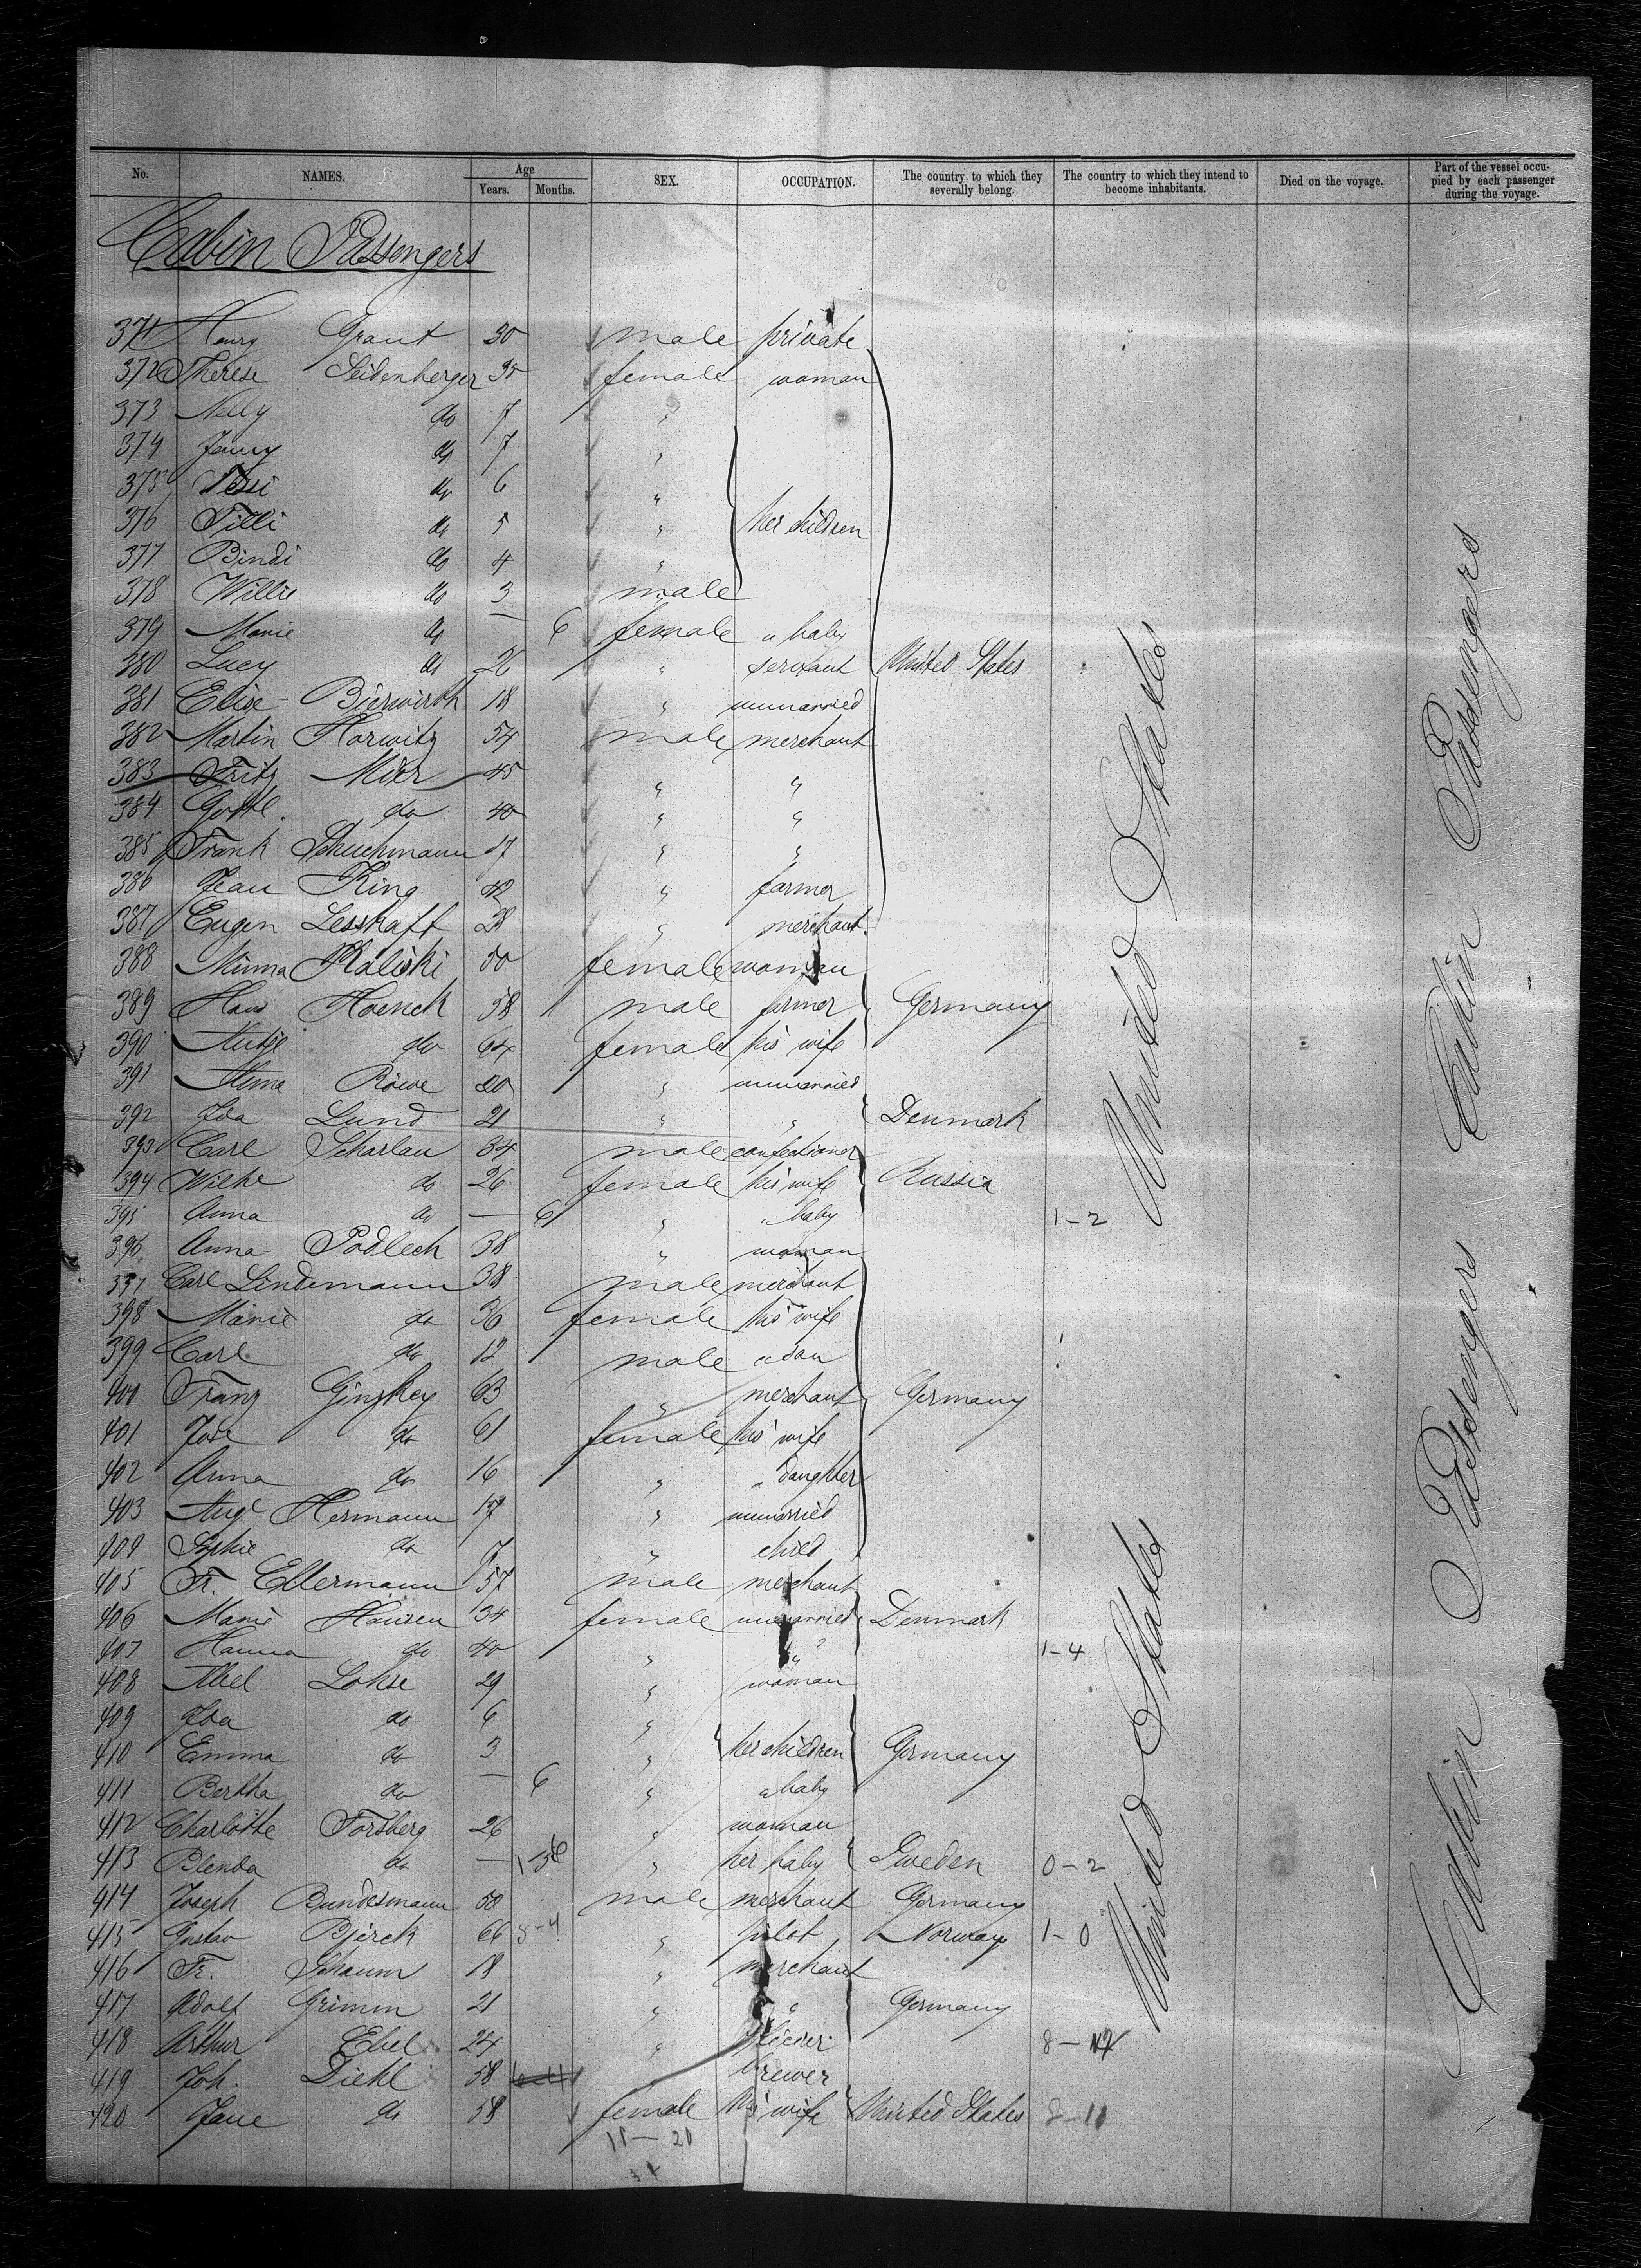 No. NAMES. Age Years. Months. SEX. OCCUPATION. The country to which they severally belong. The country to which they intend to become inhabitants. Died on the voyage. Part of the vessel occupied by each passenger during the voyage.
Cabin Passengers
371 Henry Grant 30 male private
372 Therese Seidenberger 35 female woman
373 Nelly do 7 "
374 Jenny do 7 "
375 Tessi do 6 "
376 Tilli do 5 " her children
377 Bindi do 4 "
378 Willie do 3 male
379 Marie do — 6 female " baby
380 Lucy do 26 " servant United States
381 Elise Bierwirth 18 " unmarried
382 Martin Horwitz 54 male merchant
383 Fritz Mier 45 " "
384 do 40 " "
385 Frank Schuchmann 17 " "
386 Jean King 42 " farmer
387 Eugen Lesshaft 28 " merchant
388 Minna Kaliski 50 female woman
389 Hans Hoenck 58 male farmer Germany
390 Antje do 64 female his wife
391 Alma Röwe 20 " unmarried
392 Ida Lund 21 " " Denmark
393 Carl Scharlau 34 male confectioner
394 Wilhe do 26 female his wife Russia
395 Anna do — 6 " " baby 1-2
396 Anna Podlech 38 " woman
397 Carl Lindemann 38 male merchant
398 Marie do 36 female his wife
399 Carl do 12 male " son
400 Franz Ginzkey 63 " merchant Germany
401 Jose do 61 female his wife
402 Anna do 16 " " daughter
403 Auge Hermann 17 " unmarried
404 Sophie do 7 " child
405 Fr. Ellermann 57 male merchant
406 Marie Hansen 34 female unmarried Denmark
407 Hanna do 40 " " 1-4
408 Abel Lohse 29 " woman
409 Ida do 6 "
410 Emma do 3 " her children Germany
411 Bertha do — 6 " " baby
412 Charlotte Forsberg 26 " woman
413 Blenda do — " her baby Sweden 0-2
414 Joseph Bundesmann 50 male merchant Germany
415 Gustav Bjerck 66 8-4 " pilot Norway 1-0
416 Fr. Schaum 18 " merchant
417 Adolf Grimm 21 " " Germany
418 Arthur Ebel 24 " officier 8-
419 Joh. Diehl 58 brewer
420 Jane do 58 female his wife United States 8-11
11-20
United States
United States
Cabin Passengers
Cabin Passengers